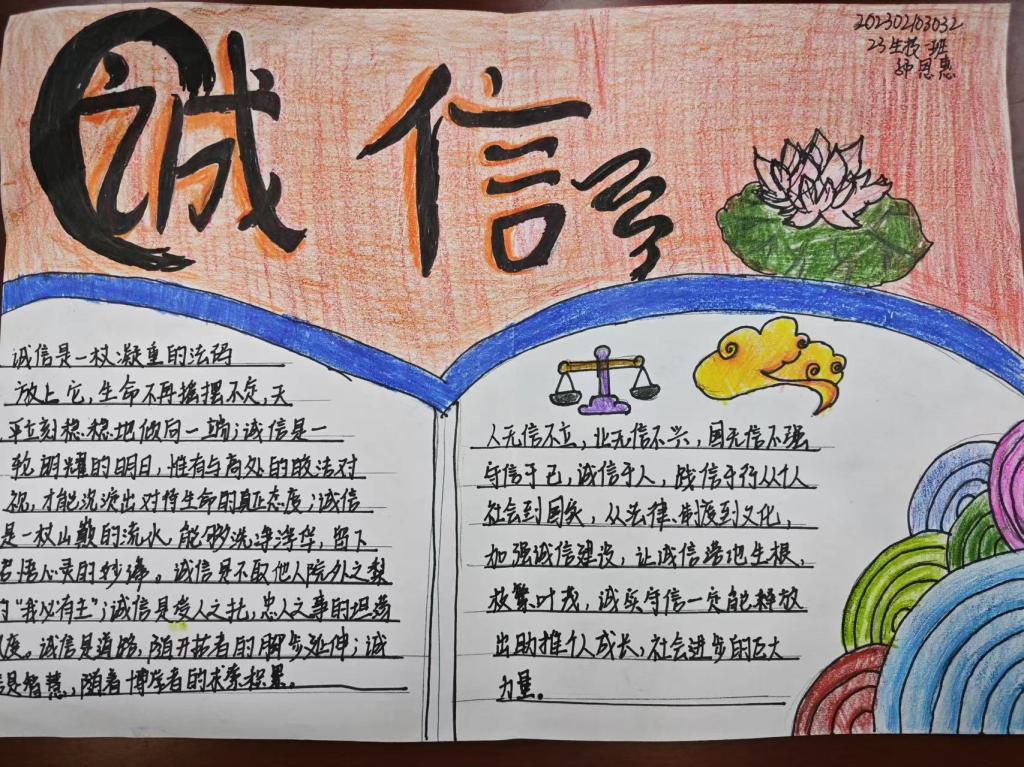 诚信
20230203032
23生技一班
钟恩惠
诚信是一枚凝重的法码
放上它,生命不再摇摆不定,天
平立刻稳稳地倾向一端;诚信是一
轮朗耀的明月,惟有与高处的皎洁对
视,才能沉淀出对待生命的真正态度;诚信
是一枚山巅的流水,能够洗净浮华,留下
启悟心灵的妙谛。诚信是不取他人院外之梨
的“我心有主”;诚信是受人之托,忠人之事的坦荡
风度。诚信是道路,随开拓者的脚步延伸;诚
信是智慧,随着博学者的求索积累。
人无信不立,业无信不兴,国无信不强
守信于己,诚信于人,践信于行从个人
社会到国家,从法律、制度到文化,
加强诚信建设,让诚信落地生根,
枝繁叶茂,诚实守信一定能释放
出助推个人成长,社会进步的巨大
力量。